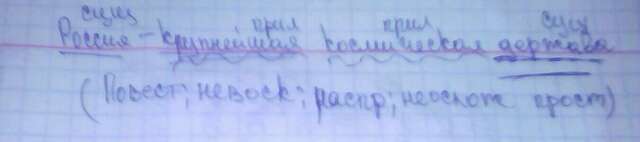 сущ прил прил сущ
Россия - крупнейшая космическая держава
(Повест; невоск; распр; неослож прост)